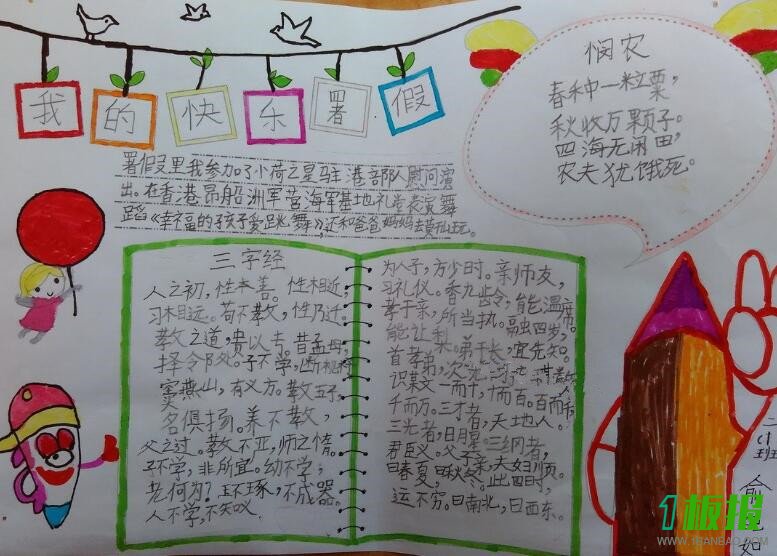 我的快乐署假
悯农
春种一粒粟，
秋收万颗子。
四海无闲田，
农夫犹饿死。
署假里我参加了小荷之星驻港部队慰问演
出。在香港昂船洲军营海军基地礼堂表演舞
蹈《幸福的孩子爱跳舞》，还和爸爸妈妈去黄山玩。
三字经
人之初，性本善。性相近，
习相远。苟不教，性乃迁。
教之道，贵以专。昔孟母，
择邻处。子不学，断机杼
窦燕山，有义方。教五子，
名俱扬。养不教，
父之过。教不严，师之惰。
子不学，非所宜。幼不学，
老何为？玉不琢，不成器。
人不学，不知义
为人子，方少时。亲师友，
习礼仪。香九龄，能温席。
孝于亲，所当执。融四岁，
能让梨。弟于长，宜先知。
首孝弟，次见
识某文一而十，十而百。百而千，
千而万。三才者，天地人。
三光者，日月星。三纲者，
君臣义。父子亲，夫妇顺。
曰春夏，曰秋冬。此四时，
运不穷。曰南北，曰西东。
二
班
俞
如
1板报
WWW.1BANBAO.COM